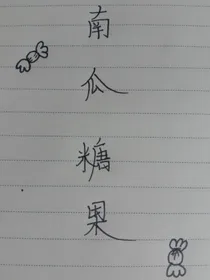 南
瓜
糖
果